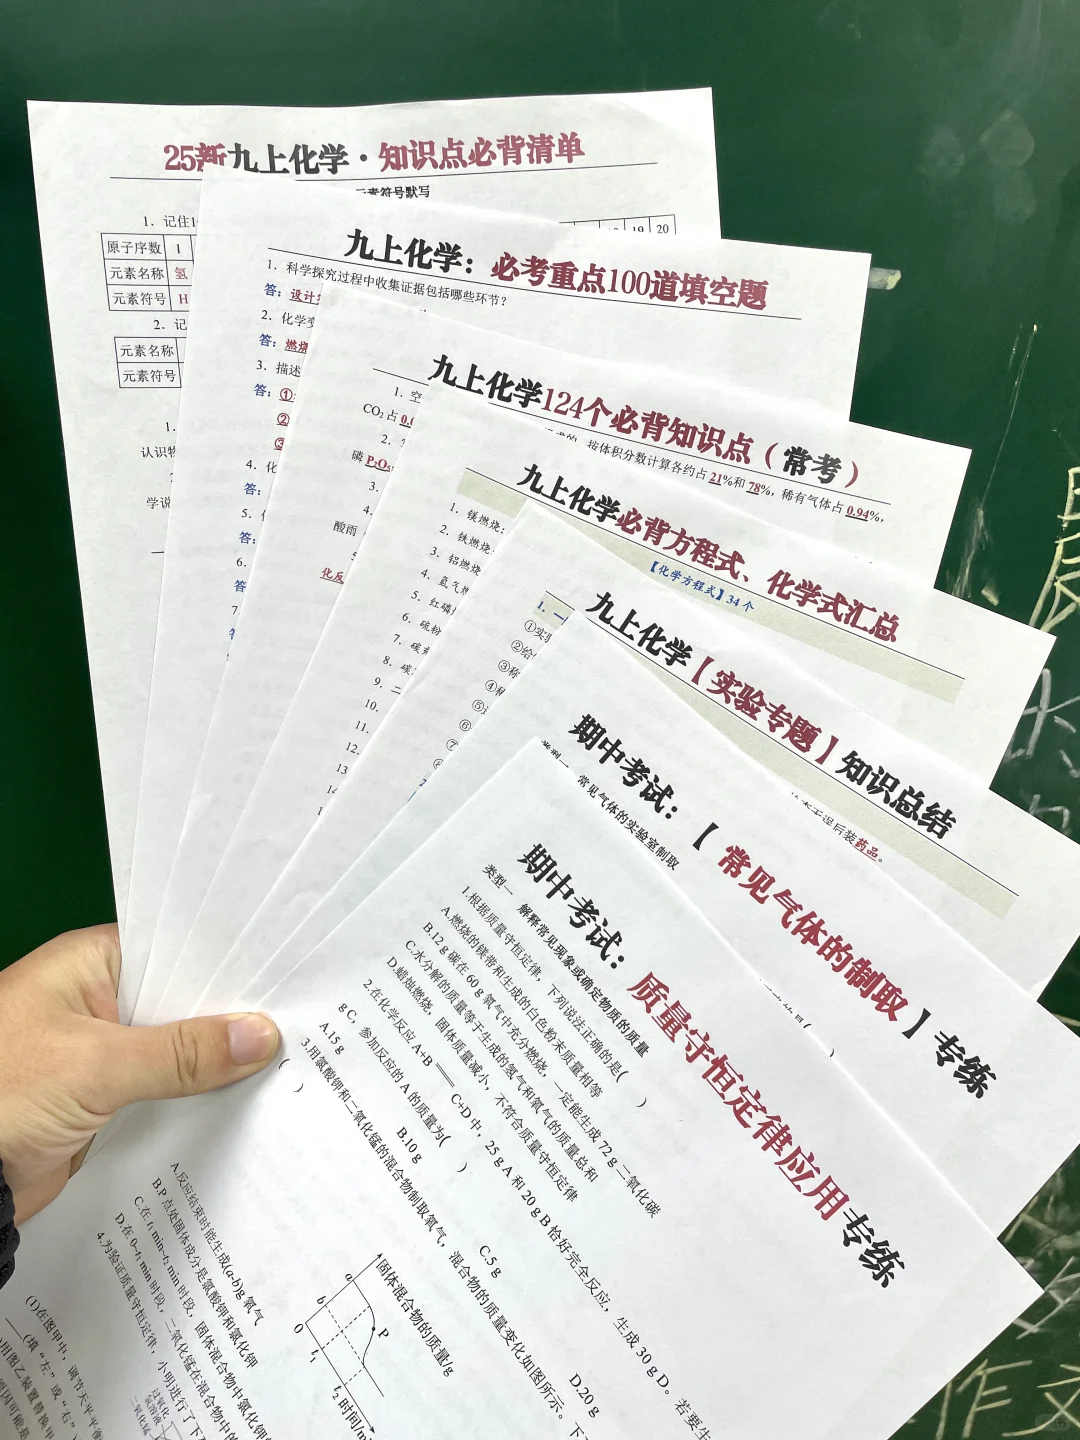 25新九上化学·知识点必背清单
元素符号默写
1. 记住1
19 20
原子序数 1
元素名称 氢
元素符号 H
2. 记
元素名称
元素符号
1.
认识物
学说
九上化学：必考重点100道填空题
1. 科学探究过程中收集证据包括哪些环节？
答：设计
2. 化学变
答：燃烧
3. 描述
答：①
②
③
4. 化
答：
5.
答：
6.
答
7
九上化学124个必背知识点（常考）
1. 空
按体积分数计算各约占21%和78%，稀有气体占0.94%，
CO₂占0.0
2.
磷P₂O₅
3.
4.
酸雨
化反
九上化学必背方程式、化学式汇总
【化学方程式】34个
1. 镁燃烧：
2. 铁燃烧
3. 铝燃烧
4. 氢气燃
5. 红磷
6. 硫粉
7. 碳
8. 碳
9. 二
10.
11.
12.
13
14
九上化学【实验专题】知识总结
1. 一
①实验
②给
③称
④
⑤
⑥
⑦
后装药品。
期中考试：【常见气体的制取】专练
类型一 常见气体的实验室制取
期中考试：质量守恒定律应用专练
类型一 解释常见现象或确定物质的质量
1.根据质量守恒定律，下列说法正确的是( )
A.燃烧的镁带和生成的白色粉末质量相等
B.12 g 碳在 60 g 氧气中充分燃烧，一定能生成 72 g 二氧化碳
C.水分解的质量等于生成的氢气和氧气的质量总和
D.蜡烛燃烧，固体质量减小，不符合质量守恒定律
2.在化学反应 A+B══C+D 中，25 g A 和 20 g B 恰好完全反应，生成 30 g D。若要生
g C，参加反应的 A 的质量为( )
A.15 g B.10 g C.5 g D.20 g
3.用氯酸钾和二氧化锰的混合物制取氧气，混合物的质量变化如图所示。下
( )
固体混合物的质量/g
a
b
P
0
t₁
t₂
时间/m
A.反应结束时能生成(a-b)g 氧气
B.P 点处固体成分是氯酸钾和氯化钾
C.在 t₁ min~t₂ min 时段，固体混合物中氯化钾的
D.在 0~t₁ min 时段，二氧化锰在混合物中的
4.为验证质量守恒定律，小明进行了下
(1)在图甲中，调节天平平衡
(填“左”或“右”)
用图乙装置替换甲
过氧化
氢溶液
二氧化锰